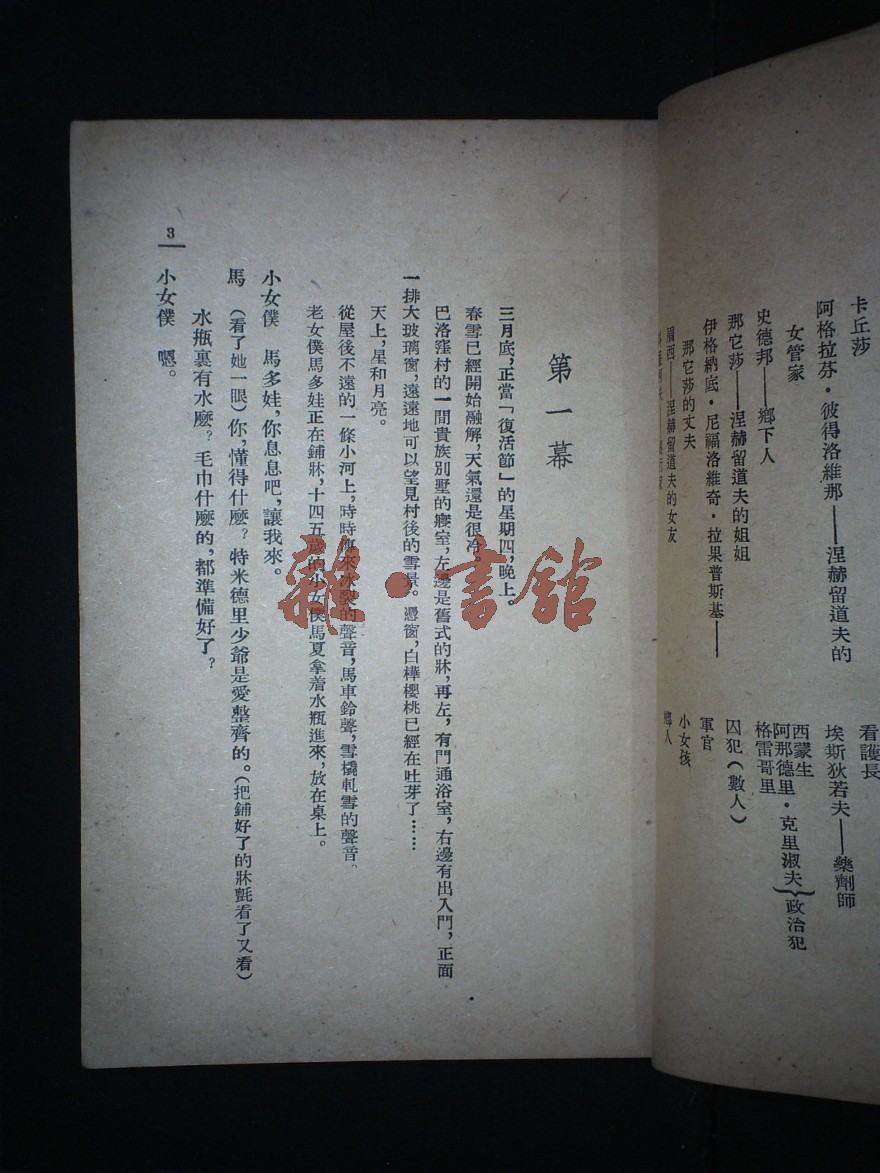 卡丘莎
阿格拉芬・彼得洛維那——涅赫留道夫的
女管家
史德邦——鄉下人
那它莎——涅赫留道夫的姐姐
伊格納底・尼福洛維奇・拉果普斯基——
那它莎的丈夫
涅赫留道夫的女友
看護長
埃斯狄若夫——藥劑師
西蒙生
阿那德里・克里淑夫}政治犯
格雷哥里
囚犯(數人)
軍官
小女孩
鄉人
第一幕
三月底,正當「復活節」的星期四,晚上。
春雪已經開始融解,天氣還是很冷
巴洛窪村的一間貴族別墅的寢室,左邊是舊式的牀,再左,有門通浴室,右邊有出入門,正面
一排大玻璃窗,遠遠地可以望見村後的雪景。憑窗,白樺櫻桃已經在吐芽了……
天上,星和月亮。
從屋後不遠的一條小河上,時時傳來冰裂的聲音,馬車鈴聲,雪橇軋雪的聲音。
老女僕馬多娃正在鋪牀,十四五歲的小女僕馬夏拿着水瓶進來,放在桌上。
小女僕 馬多娃,你息息吧,讓我來。
馬 (看了她一眼)你,懂得什麼?特米德里少爺是愛整齊的。(把鋪好了的牀氈看了又看)
水瓶裏有水麼?毛巾什麼的,都準備好了?
小女僕 嗯。
3
雜・書館